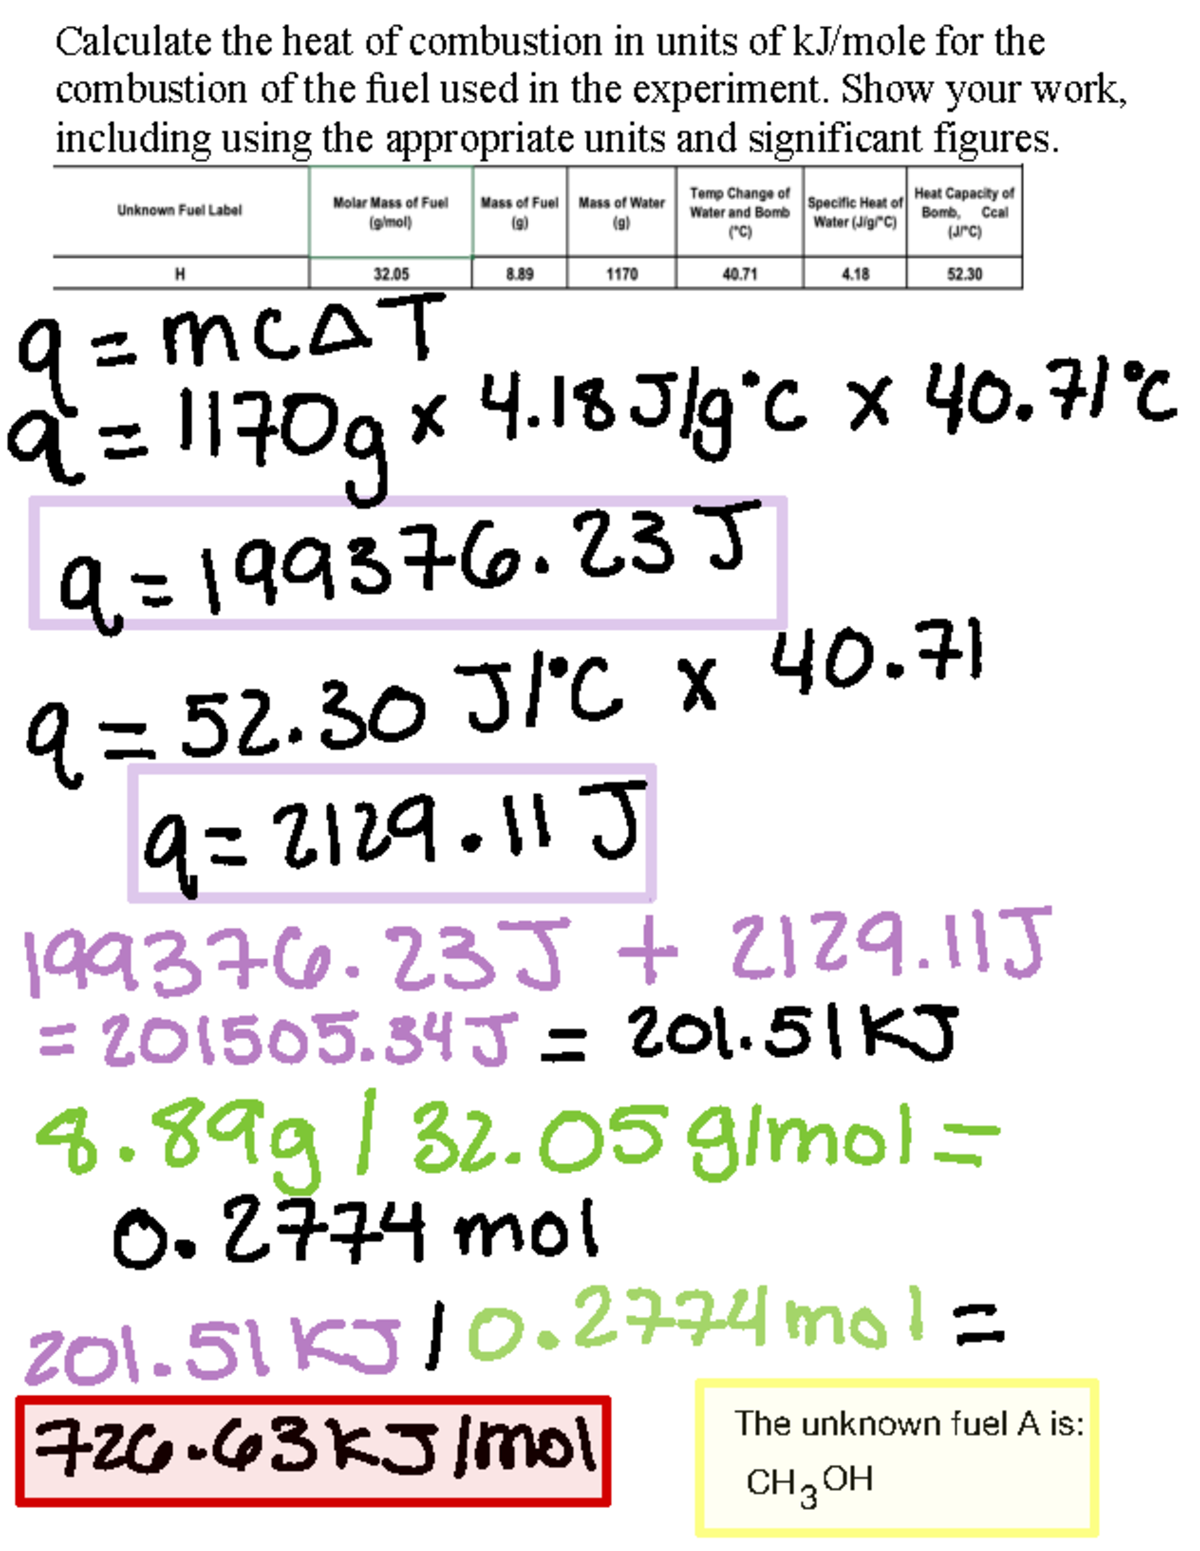 Calculate the heat of combustion in units of kJ/mole for the
combustion of the fuel used in the experiment. Show your work,
including using the appropriate units and significant figures.
Unknown Fuel Label Molar Mass of Fuel (g/mol) Mass of Fuel (g) Mass of Water (g) Temp Change of Water and Bomb (°C) Specific Heat of Water (J/g/°C) Heat Capacity of Bomb, Ccal (J/°C)
H 32.05 8.89 1170 40.71 4.18 52.30
q = mc∆T
q = 1170g x 4.18 J/g°C x 40.71°C
q = 199376.23 J
q = 52.30 J/°C x 40.71
q = 2129.11 J
199376.23 J + 2129.11 J
= 201505.34 J = 201.51 KJ
8.89g / 32.05 g/mol =
0.2774 mol
201.51 KJ / 0.2774 mol =
726.63 KJ/mol
The unknown fuel A is:
CH₃OH